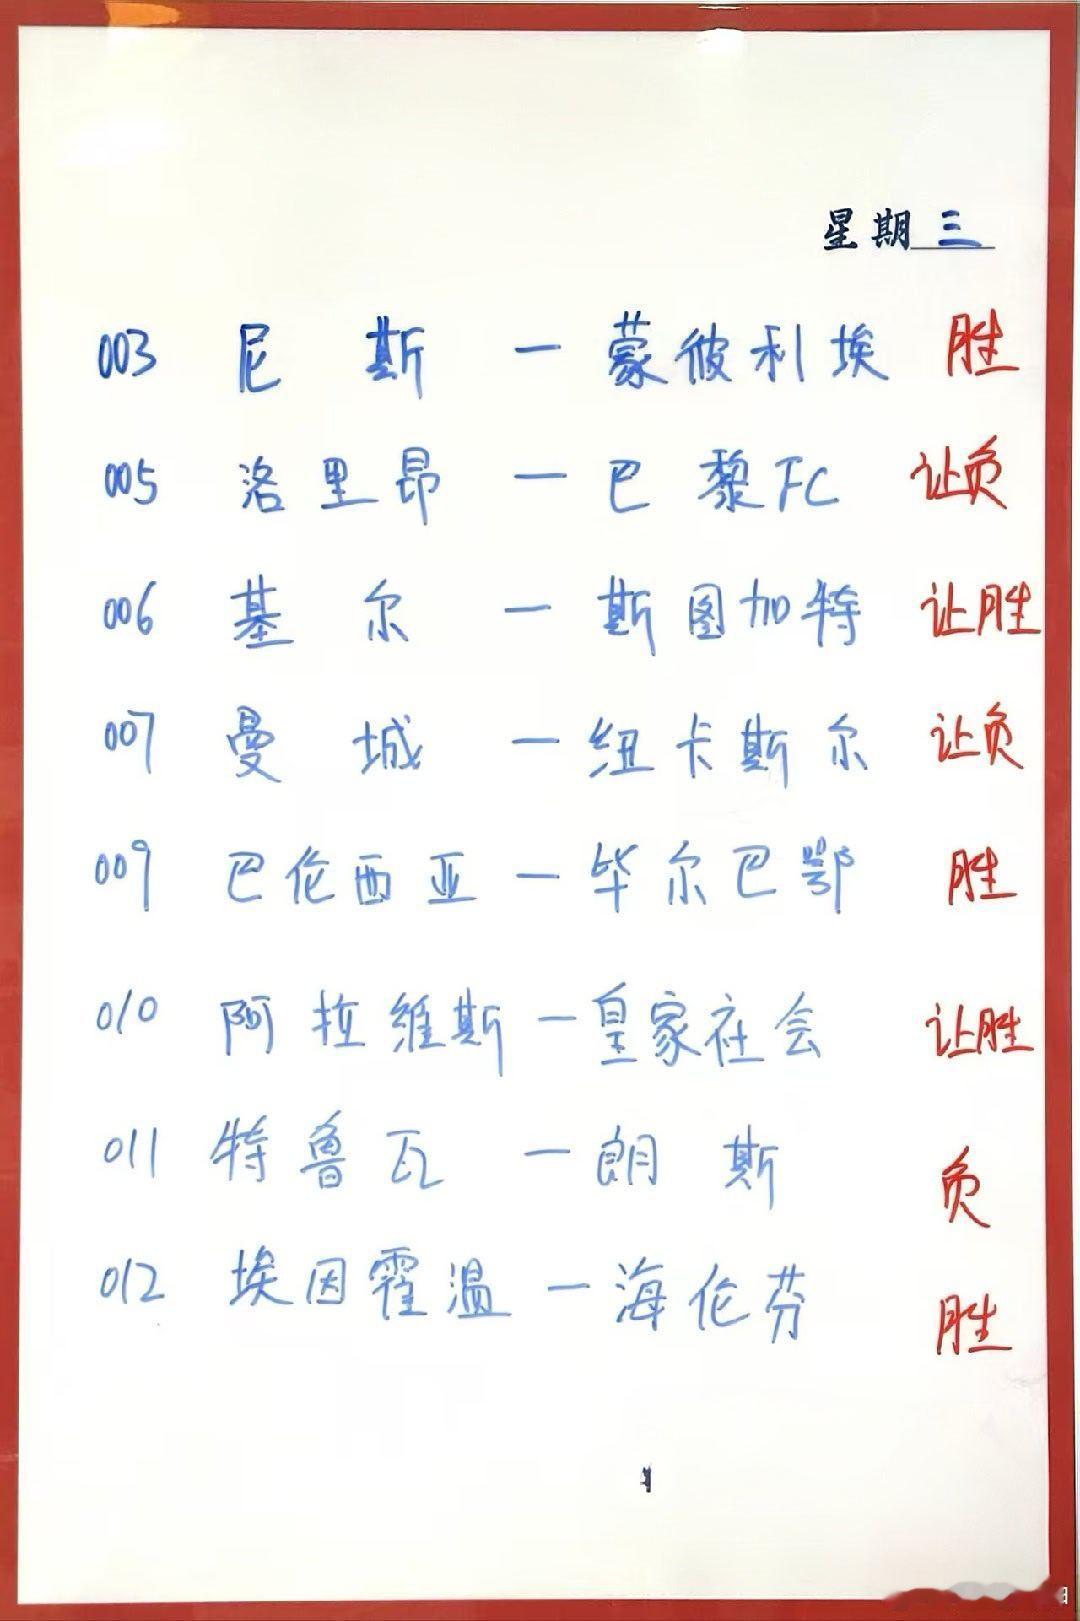 星期三
003 尼斯 — 蒙彼利埃 胜
005 洛里昂 — 巴黎FC 让负
006 基尔 — 斯图加特 让胜
007 曼城 — 纽卡斯尔 让负
009 巴伦西亚 — 毕尔巴鄂 胜
010 阿拉维斯 — 皇家社会 让胜
011 特鲁瓦 — 朗斯 负
012 埃因霍温 — 海伦芬 胜